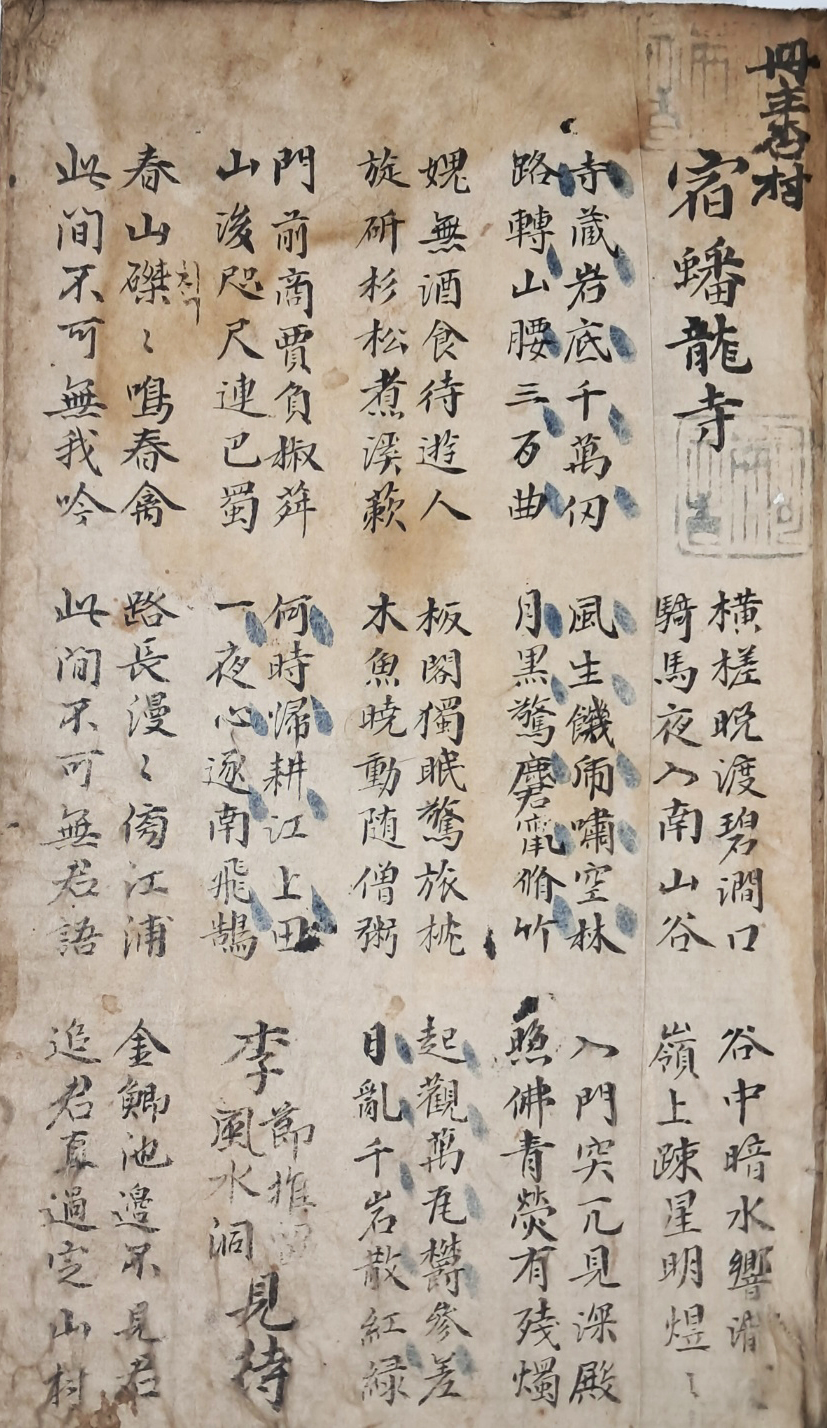 冊主杏村
宿蟠龍寺
横槎晚渡碧澗口
騎馬夜入南山谷
谷中暗水響
嶺上踈星明煜〻
寺蔵岩底千萬仞
路轉山腰三百曲
風生饑乕嘯空林
月黒驚麏竄脩竹
入門突兀見深殿
照佛青熒有殘燭
媿無酒食待遊人
旋斫杉松煮溪蔌
板閣獨眠驚旅枕
木魚曉動随僧粥
起觀萬瓦欝參差
目亂千岩散紅緑
門前商賈負椒荈
山後咫尺連巴蜀
何時帰耕江上田
一夜心逐南飛鵠
李節推風水洞見待
春山磔〻鳴春禽
척
此間不可無我吟
路長漫〻傍江浦
此間不可無君語
金鯽池邊不見君
追君直過定山村